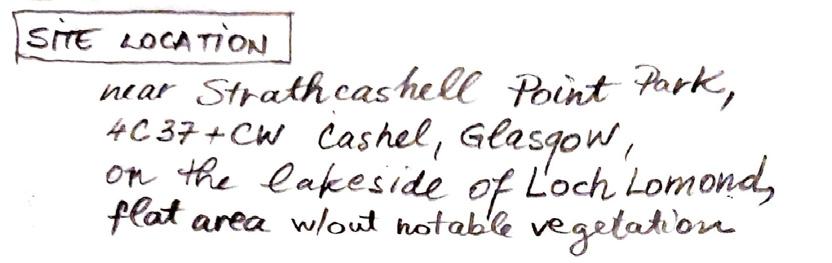 SITE LOCATION
near Strathcashell Point Park,
4C37+CW Cashel, Glasgow,
on the lakeside of Loch Lomond,
flat area w/out notable vegetation